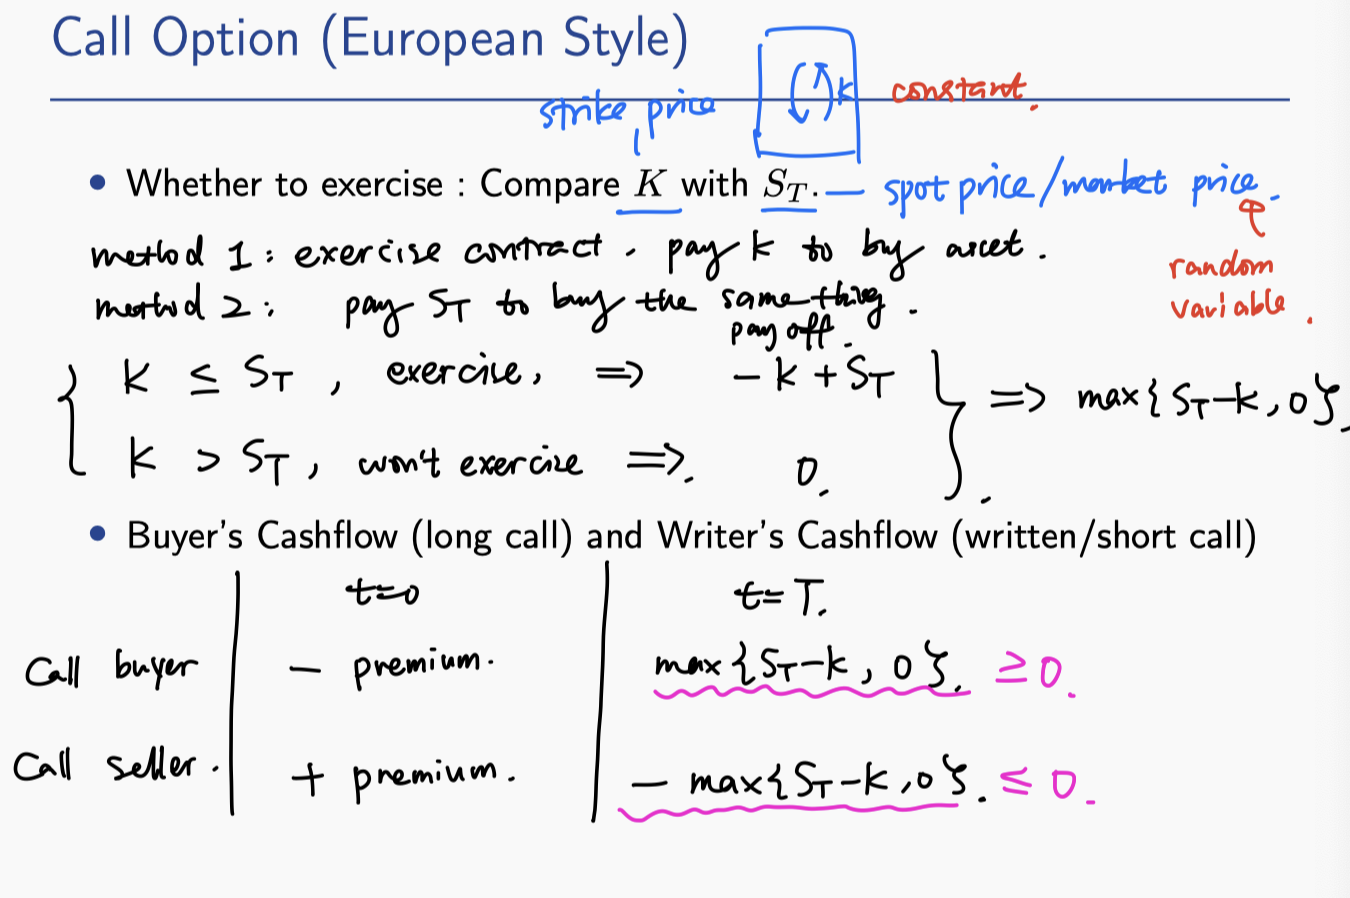 Call Option (European Style)
strike price K constant.
• Whether to exercise : Compare K with S_T. — spot price/market price.
method 1 : exercise contract . pay K to by asset .
random
variable .
method 2 : pay S_T to buy the same thing .
pay off .
{ K ≤ S_T , exercise , => - K + S_T } => max{ S_T - K , 0 } .
K > S_T , won't exercise => . 0 .
• Buyer's Cashflow (long call) and Writer's Cashflow (written/short call)
t=0 t=T.
Call buyer - premium. max{S_T-K , 0} . ≥0 .
Call seller . + premium . - max{S_T-K , 0} . ≤ 0 .